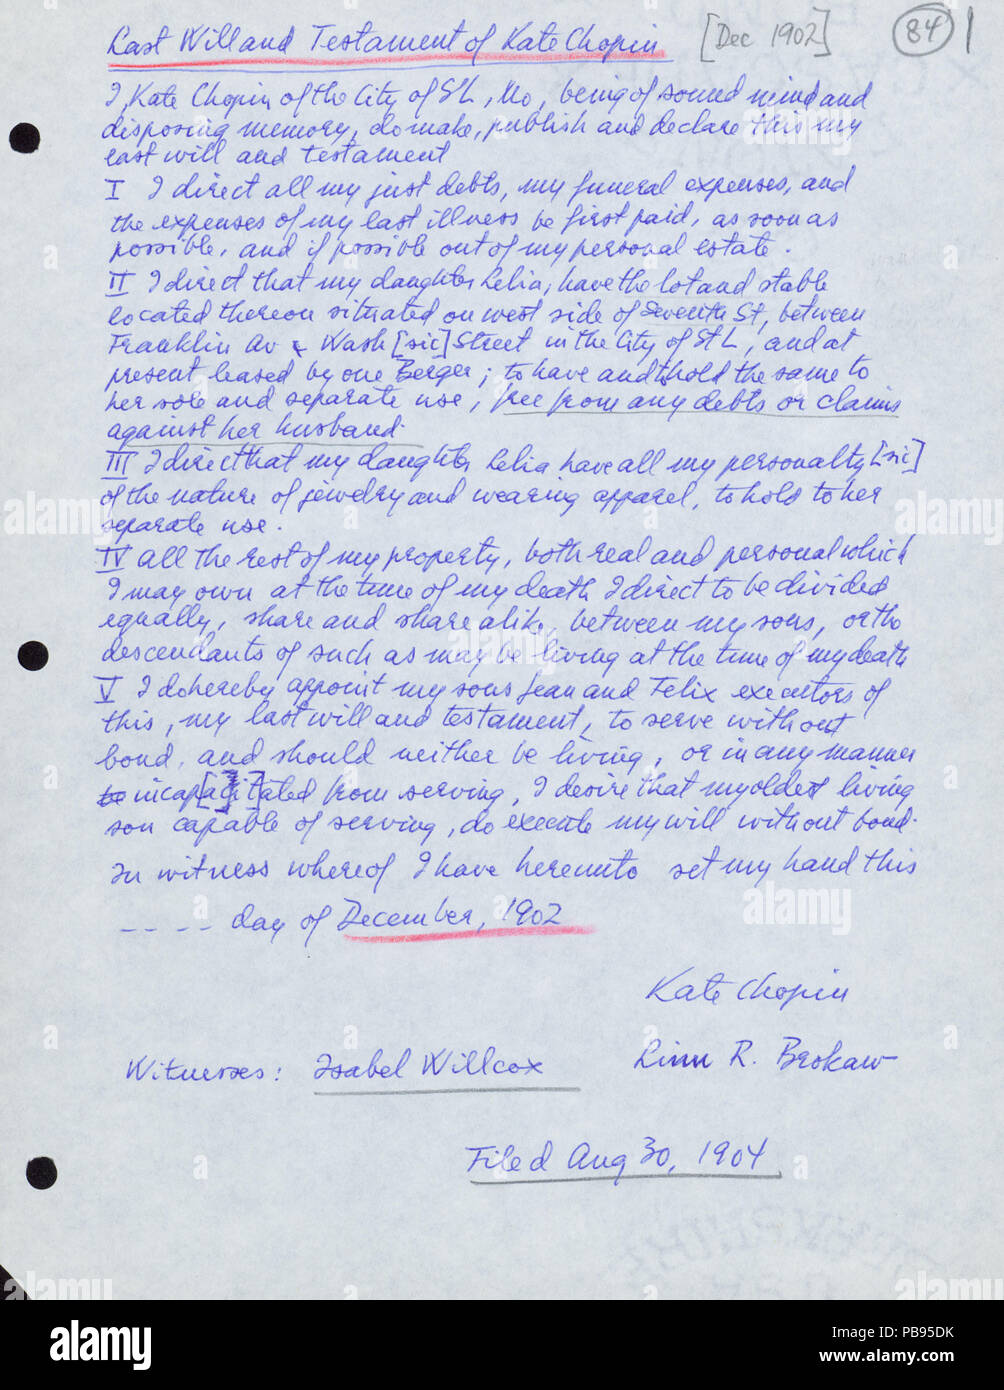 Last Will and Testament of Kate Chopin [Dec 1902] 84
I, Kate Chopin of the City of St L, Mo, being of sound mind and
disposing memory, do make, publish and declare this my
last will and testament
I I direct all my just debts, my funeral expenses, and
the expenses of my last illness be first paid, as soon as
possible, and if possible out of my personal estate.
II I direct that my daughter Lelia, have the lot and stable
located thereon situated on west side of Seventh St, between
Franklin Av & Wash [sic] Street in the City of St L, and at
present leased by one Berger; to have and to hold the same to
her sole and separate use, free from any debts or claims
against her husband.
III I direct that my daughter Lelia have all my personalty [sic]
of the nature of jewelry and wearing apparel, to hold to her
separate use.
IV All the rest of my property, both real and personal which
I may own at the time of my death I direct to be divided
equally, share and share alike, between my sons, or the
descendants of such as may be living at the time of my death
V I do hereby appoint my sons Jean and Felix executors of
this, my last will and testament, to serve without
bond, and should neither be living, or in any manner
be incapa[ci]tated from serving, I desire that my oldest living
son capable of serving, do execute my will without bond.
In witness whereof I have hereunto set my hand this
---- day of December, 1902
Kate Chopin
Witnesses: Isabel Willcox Linn R. Brokaw
Filed Aug 30, 1904
alamy
Image ID: PB95DK
www.alamy.com